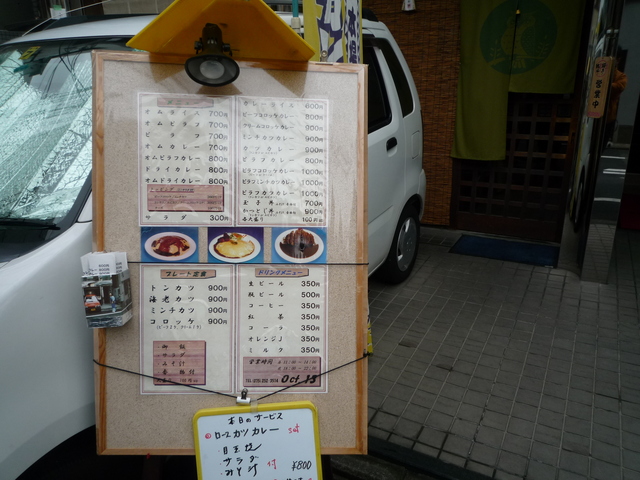 オムライス 700円
オムピラフ 700円
ピラフ 700円
オムカレー 800円
オムピラフカレー 800円
ドライカレー 800円
オムドライカレー 800円
サラダ 300円
ビーフコロッケカレー 800円
クリームコロッケカレー 900円
ミンチカツカレー 900円
カツカレー 900円
ピラフカレー
ピラフコロッケカレー 1000円
ピラフミンチカツカレー 1000円
ピラフカツカレー 1000円
玉子丼 700円
900円
大盛り 100円
プレート定食
トンカツ 900円
海老カツ 900円
ミンチカツ 900円
コロッケ 900円
御飯
サラダ
みそ汁
香物付
ドリンクメニュー
生ビール 350円
瓶ビール 500円
コーヒー 350円
紅茶 350円
コーラ 350円
オレンジJ 350円
ミルク 350円
営業時間
Oct 15
本日のサービス
ロースカツカレー set
目玉焼
サラダ
みそ汁 付 ¥800
営業中